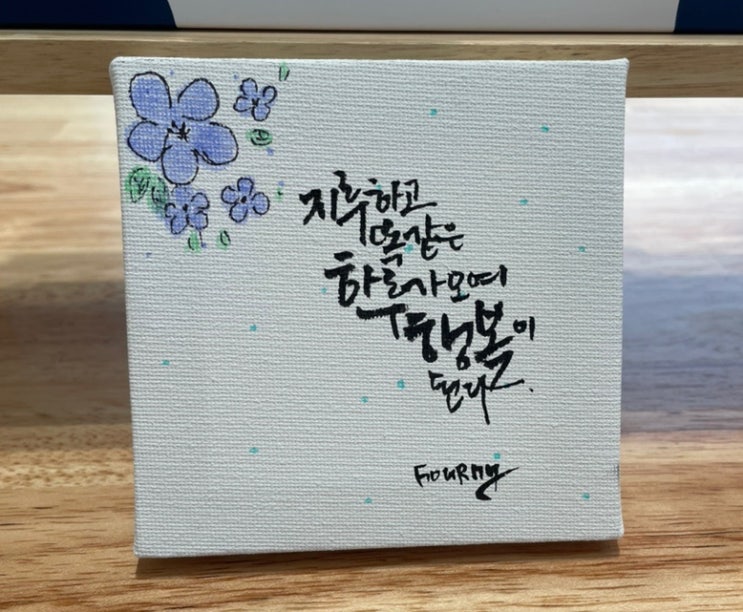 지루하고
똑같은
하루가 모여
행복이
된다.